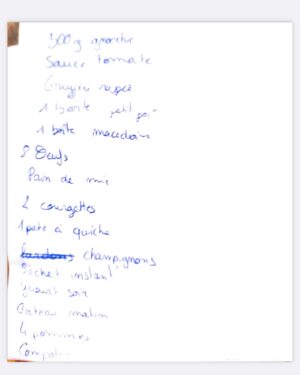 500g
Sauce tomate
Gruyère rapé
1 boîte petit poi
1 boîte macedoin
8 Oeufs
Pain de mie
2 courgettes
1 pate à quiche
lardons champignons
Sachet instant
yaourt soir
Gateau matin
4 pommes
Compot